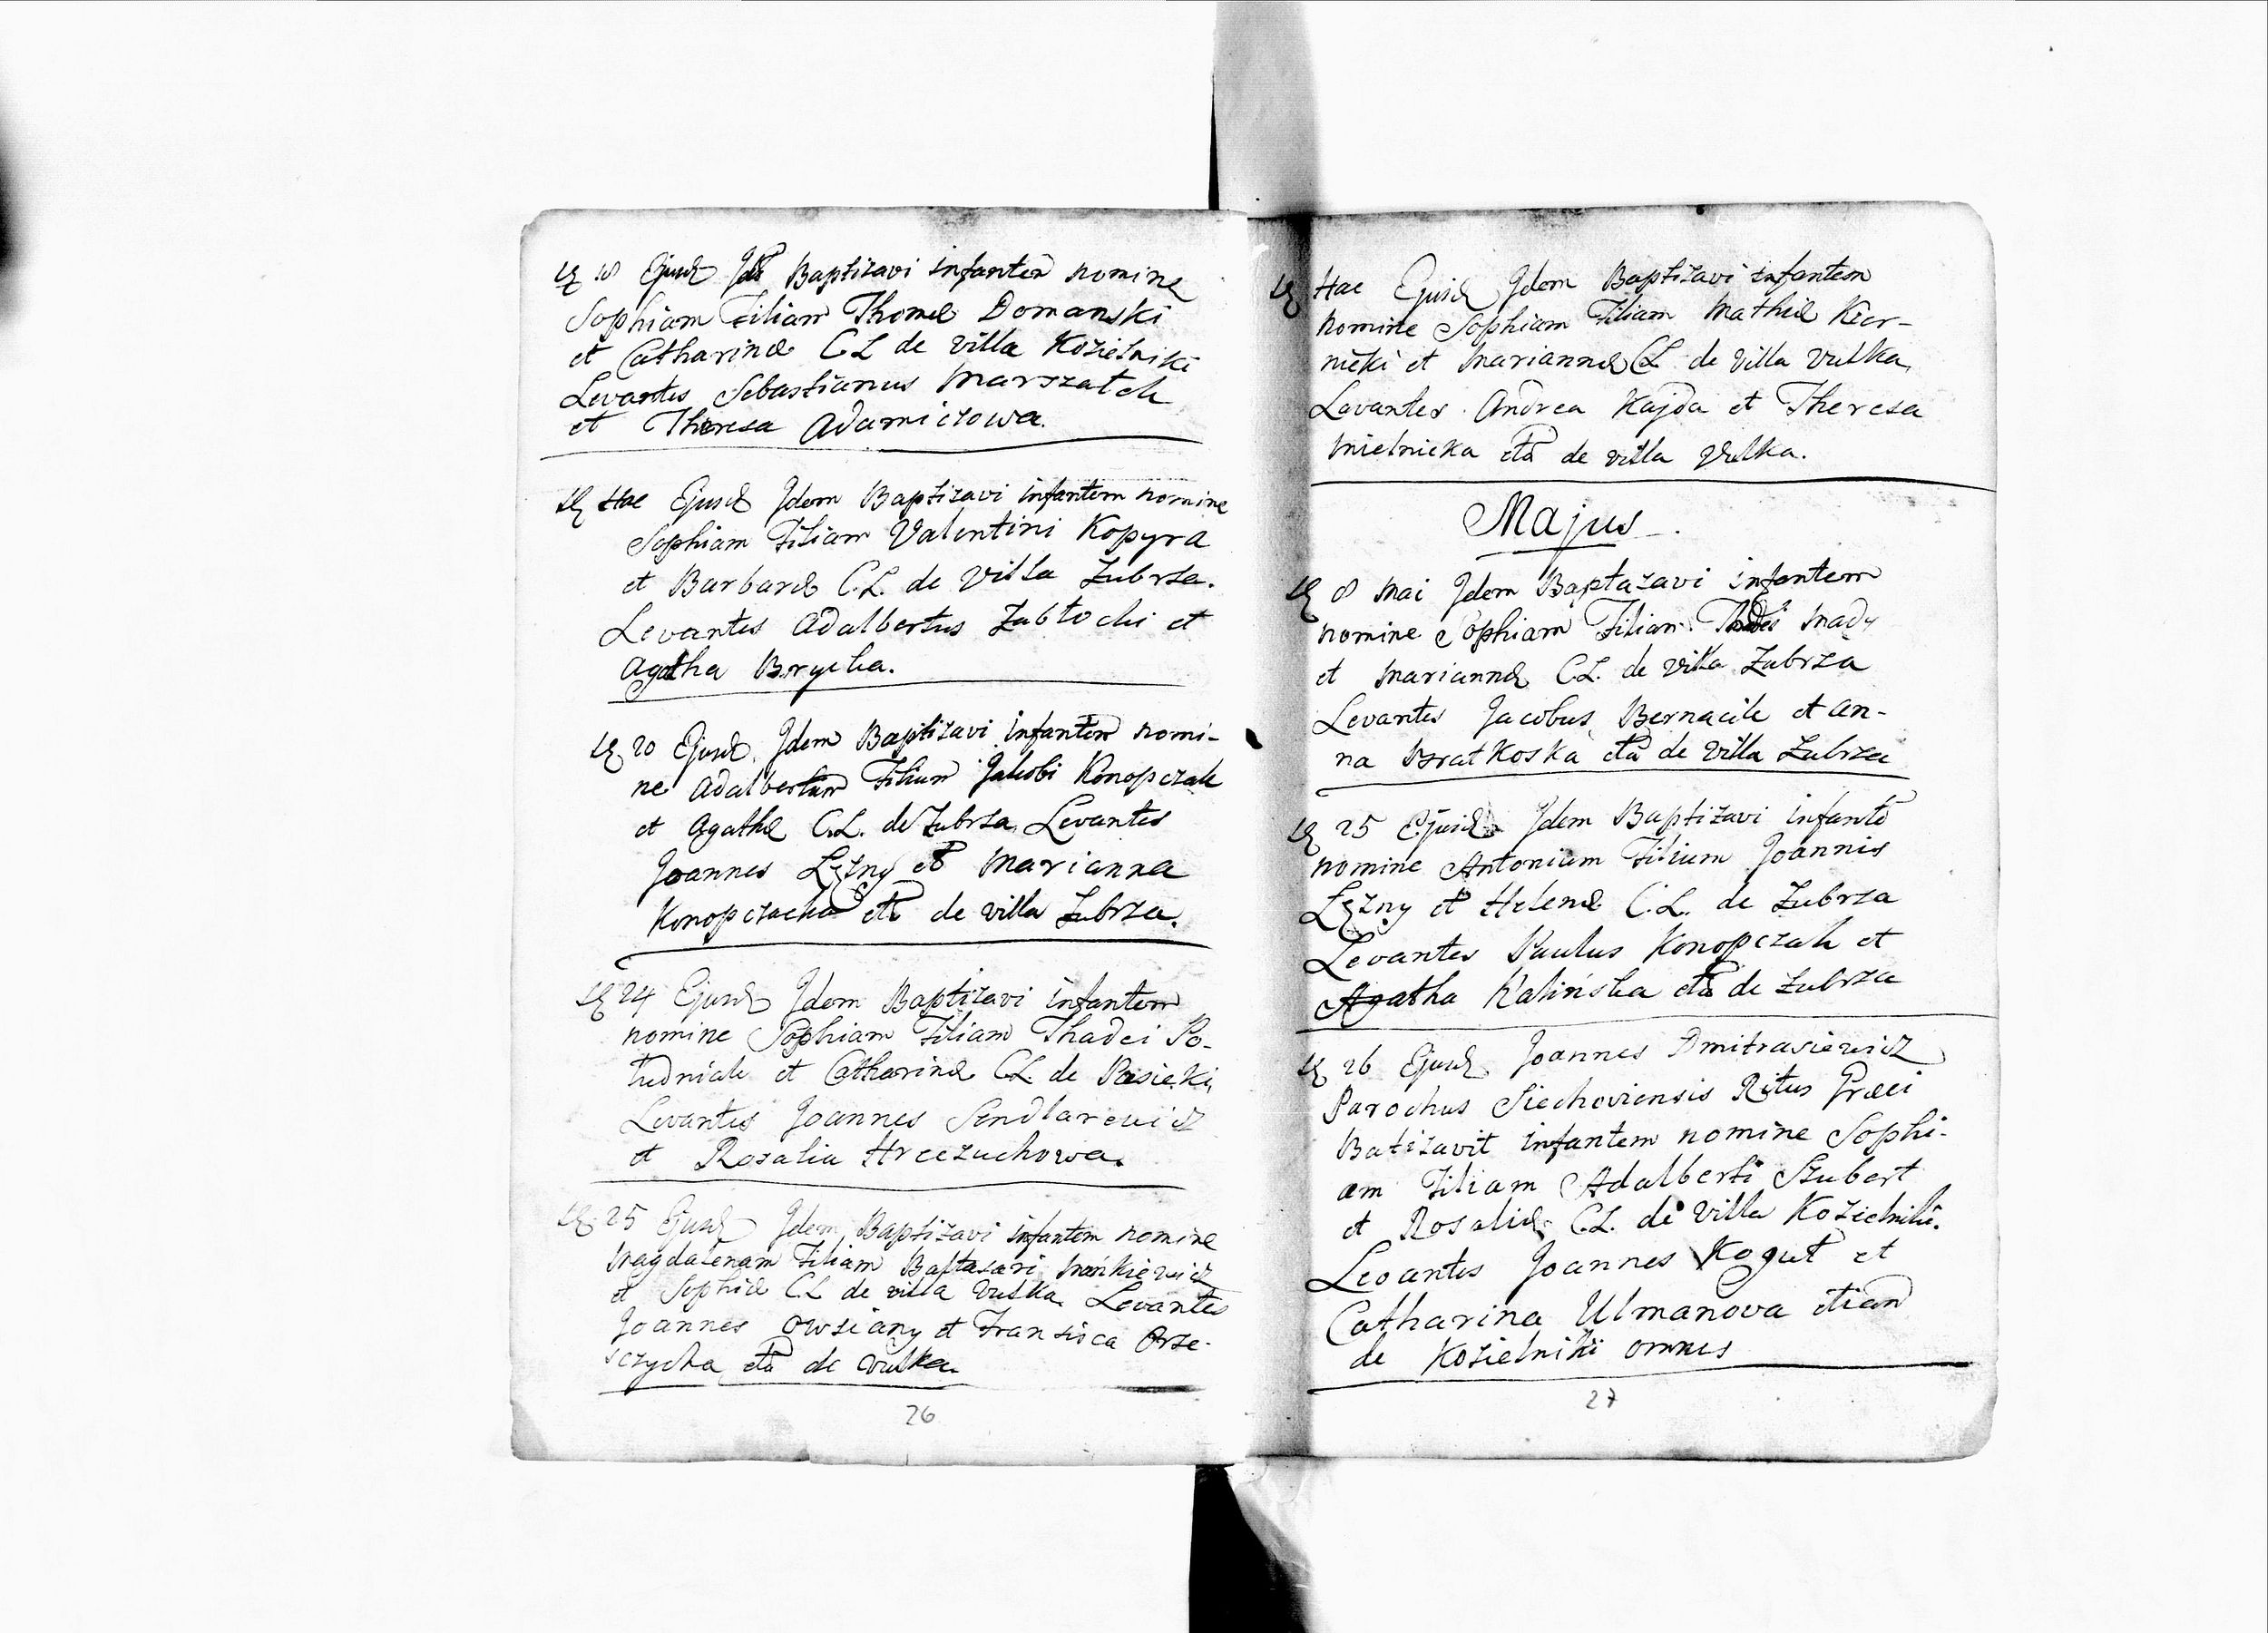 18 Ejusd Id Baptizavi infantem nomine
Sophiam Filiam Thomæ Domanski
et Catharinæ C L de villa Kozielniki
Levantes Sebastianus Marszałek
et Theresa Adamiczowa.
Hac Ejusd Idem Baptizavi infantem nomine
Sophiam Filiam Valentini Kopyra
et Barbaræ C. L. de Villa Zubrza.
Levantes Adalbertus Zabłocki et
Agatha Brycka.
20 Ejusd Idem Baptizavi infantem nomi-
ne Adalbertum Filium Jakobi Konopczak
et Agathæ C. L. de Zubrza Levantes
Joannes Lęzny et Marianna
Konopczacka etā de villa Zubrza.
24 Ejusd Idem Baptizavi infantem
nomine Sophiam Filiam Thadei Po-
ludniak et Catharinæ C L. de Pasieki
Levantes Joannes Sendlarewicz
et Rosalia Hreczuchowa.
25 Ejusd Idem Baptizavi infantem nomine
Magdalenam Filiam Baltasari
et Sophiæ C L de villa Vulka Levantes
Joannes Owsiany et Fransisca Orze-
sczycha etā de Vulka
26
Hac Ejusd Idem Baptizavi infantem
nomine Sophiam Filiam Mathiæ Kier-
nicki et Mariannæ C L de Villa Vulka
Levantes Andrea Kajda et Theresa
Mielnicka etā de villa Vulka.
Majus
8 Mai Idem Baptazavi infantem
nomine Sophiam Filiam Mady
et Mariannæ C. L. de villa Zubrza
Levantes Jacobus Bernacik et An-
na Bratkoska etā de Villa Zubrza
25 Ejusd Idem Baptizavi infantē
nomine Antonium Filium Joannis
Lęzny et Helenæ C. L. de Zubrza
Levantes Paulus Konopczak et
Agatha Kalińska etā de Zubrza
26 Ejusd Joannes Dmitrasiewicz
Parochus Siechoviensis Ritus Græci
Batizavit infantem nomine Sophi-
am Filiam Adalberti Szubert
et Rosaliæ C. L. de Villa Kozielniki.
Levantes Joannes Kogut et
Catharina Ulmanova etiam
de Kozielniki omnes
27